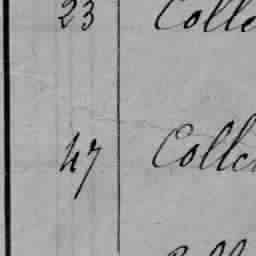 23 Colle
47 Colle